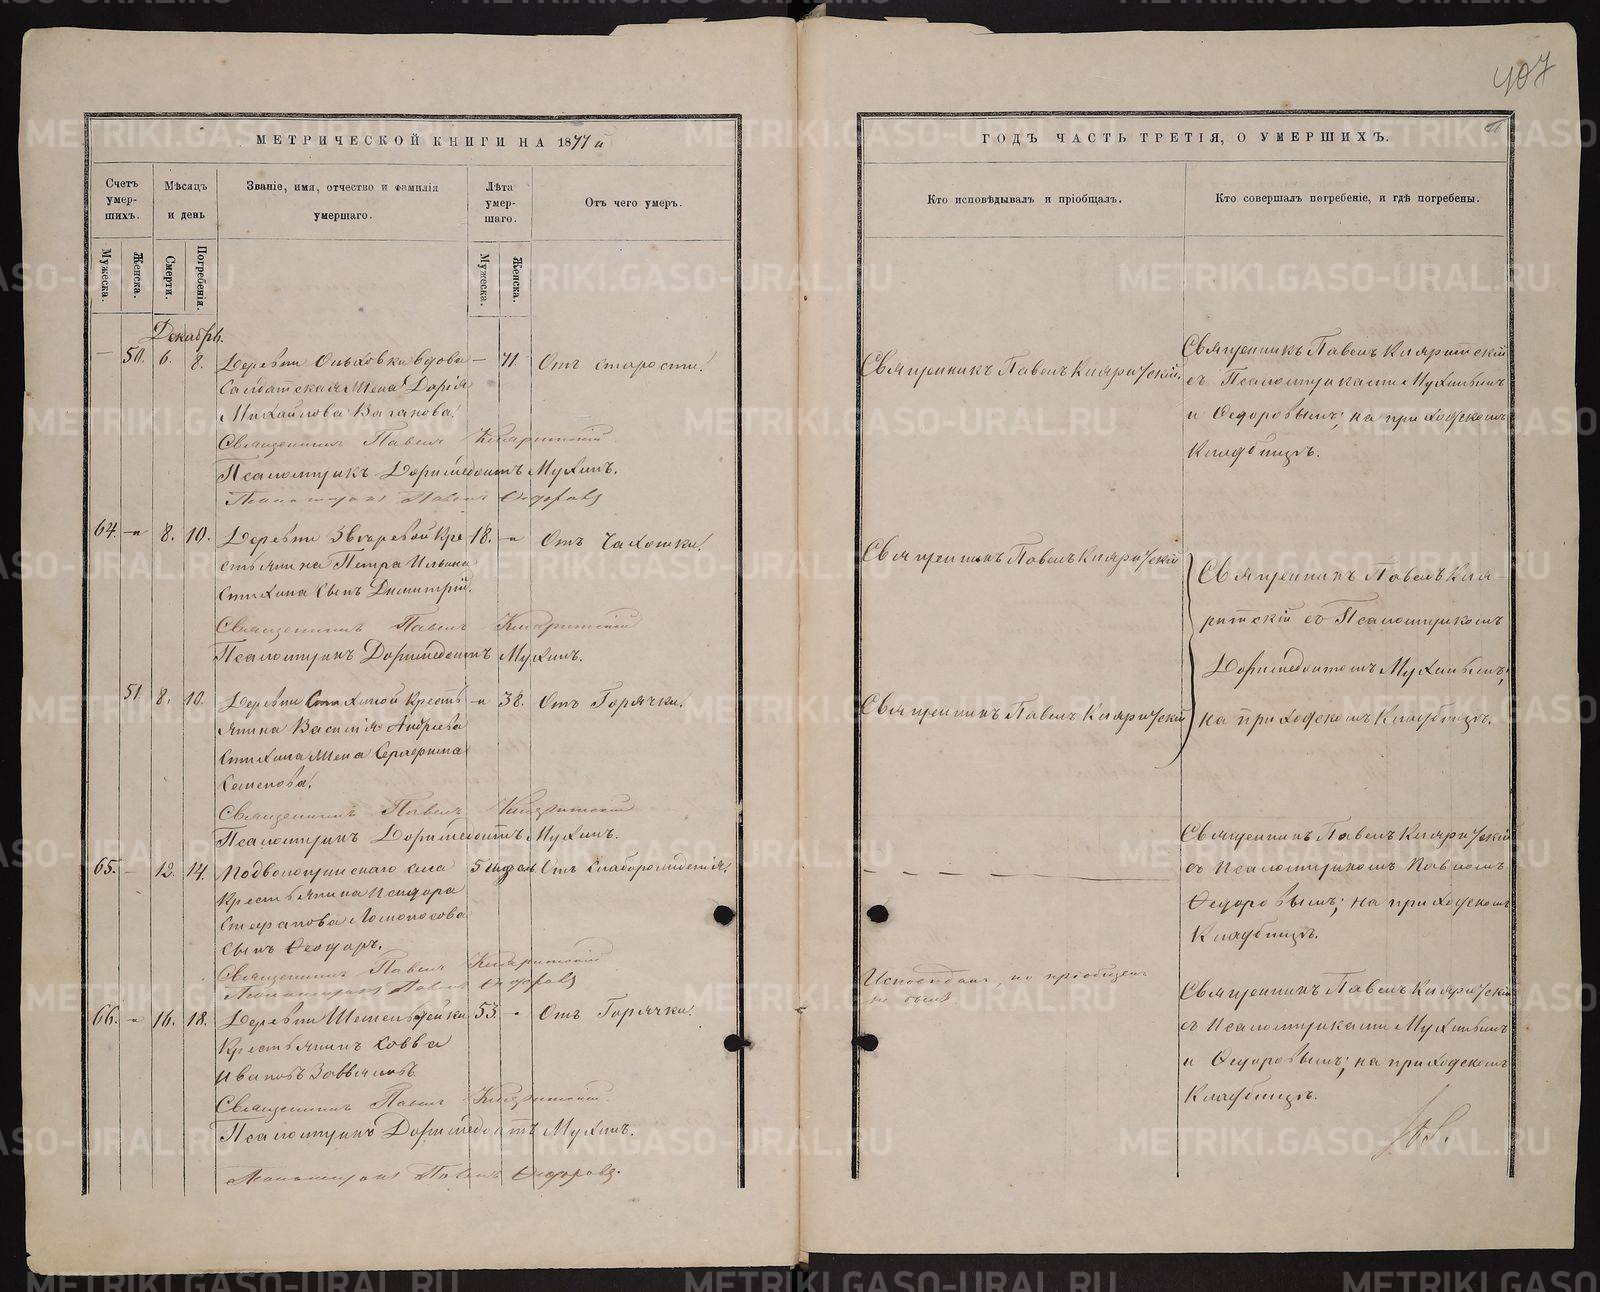 407
МЕТРИЧЕСКОЙ КНИГИ НА 1877 й
Счетъ умер-шихъ.
Мѣсяцъ и день
Званіе, имя, отчество и фамилія умершаго.
Лѣта умер-шаго.
Отъ чего умеръ.
Мужеска.
Женска.
Смерти.
Погребенія.
Мужеска.
Женска.
Декабрь.
50. 6. 8. Деревни Ольховки вдова — 71. Отъ старости.
Солдатская жена Дарія
Михайлова Ваганова.
Священникъ Павелъ
Псаломщикъ Доримедонтъ Мухинъ.
Псаломщикъ Павелъ Ѳедоровъ
64. 8. 10. Деревни Звѣревой Кре 18. Отъ Чахотки.
стьянина Петра Ильина
Стихина сынъ Димитрій.
Священникъ Павелъ
Псаломщикъ Доримедонтъ Мухинъ.
51 8. 10. Деревни Стихиной Кресть 38. Отъ Горячки.
янина Василія Андреева
Стихина жена Серафима
Семенова.
Священникъ Павелъ
Псаломщикъ Доримедонтъ Мухинъ.
65. 12. 14. Подволошинскаго села 5 недѣль Отъ Слаборожденія.
Крестьянина Исидора
Стефанова Ломоносова
сынъ Ѳеодоръ.
Священникъ Павелъ
Псаломщикъ Павелъ Ѳедоровъ
66. 16. 18. Деревни 53. Отъ Горячки.
Крестьянинъ Савва
Ивановъ Завьяловъ
Священникъ Павелъ
Псаломщикъ Доримедонтъ Мухинъ.
Псаломщикъ Павелъ Ѳедоровъ.
ГОДЪ ЧАСТЬ ТРЕТІЯ, О УМЕРШИХЪ.
Кто исповѣдывалъ и пріобщалъ.
Кто совершалъ погребеніе, и гдѣ погребены.
Священникъ Павелъ
Священникъ Павелъ
съ Псаломщиками Мухинымъ
и Ѳедоровымъ; на приходскомъ
Кладбищѣ.
Священникъ Павелъ
Священникъ Павелъ
съ Псаломщикомъ
Доримедонтомъ Мухинымъ;
на приходскомъ Кладбищѣ.
Священникъ Павелъ
Священникъ Павелъ
съ Псаломщикомъ Павломъ
Ѳедоровымъ; на приходскомъ
Кладбищѣ.
Исповѣданъ, но пріобщенъ
не былъ
Священникъ Павелъ
съ Псаломщиками Мухинымъ
и Ѳедоровымъ; на приходскомъ
Кладбищѣ.
METRIKI.GASO-URAL.RU